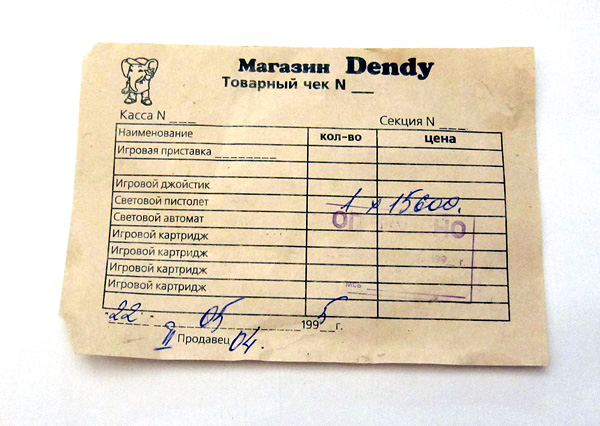 Магазин Dendy
Товарный чек N __
Касса N ___ Секция N ___
Наименование кол-во цена
Игровая приставка
Игровой джойстик
Световой пистолет 1 x 15600.
Световой автомат
Игровой картридж
Игровой картридж
Игровой картридж
Игровой картридж
"22" 05 1995 г.
II Продавец 04.